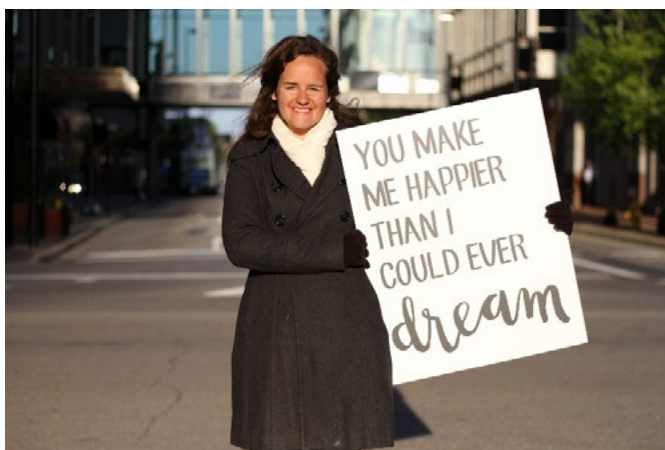 YOU MAKE
ME HAPPIER
THAN I
COULD EVER
dream